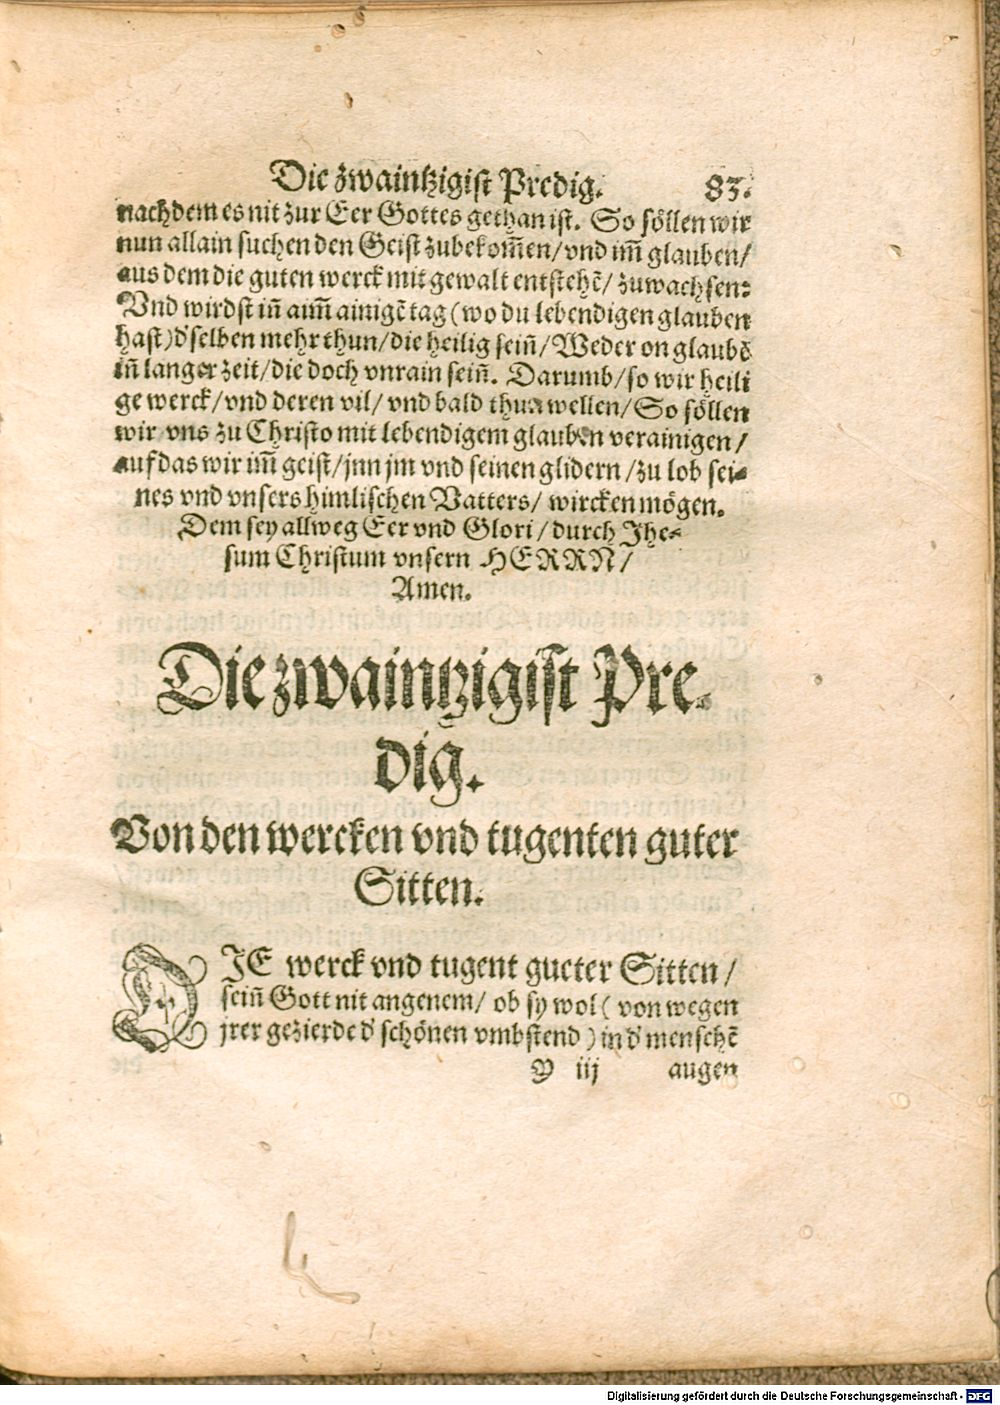 Die zwaintzigist Predig. 83.
nachdem es nit zur Eer Gottes gethan ist. So söllen wir
nun allain suchen den Geist zubekom̃en/ vnd im̃ glauben/
aus dem die guten werck mit gewalt entstehẽ/ zuwachsen:
Vnd wirdst in̄ aim̃ ainigẽ tag (wo du lebendigen glauben
hast) d'selben mehr thun/ die heilig sein̄/ Weder on glaubẽ
in̄ langer zeit/ die doch vnrain sein̄. Darumb/ so wir heili
ge werck/ vnd deren vil/ vnd bald thun wellen/ So söllen
wir vns zu Christo mit lebendigem glauben verainigen/
auf das wir im̃ geist/ jnn jm vnd seinen glidern/ zu lob sei-
nes vnd vnsers himlischen Vatters/ wircken mögen.
Dem sey allweg Eer vnd Glori/ durch Jhe-
sum Christum vnsern HERRN/
Amen.
Die zwaintzigist Pre-
dig.
Von den wercken vnd tugenten guter
Sitten.
DIE werck vnd tugent gueter Sitten/
sein̄ Gott nit angenem/ ob sy wol (von wegen
jrer gezierde d' schönen vmbstend) in d' menschẽ
Y iij augen
Digitalisierung gefördert durch die Deutsche Forschungsgemeinschaft - DFG